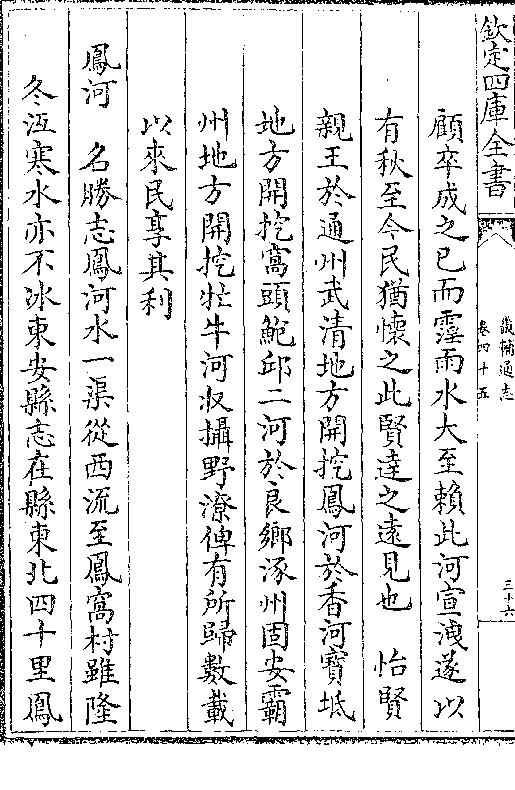 欽定四庫全書
畿輔通志
卷四十五
三十六
顧卒成之已而霪雨水大至賴此河宣洩遂以
有秋至今民猶懷之此賢達之遠見也　怡賢
親王於通州武清地方開挖鳳河於香河寶坻
地方開挖窩頭鮑邱二河於良鄉涿州固安霸
州地方開挖牤牛河収攝野潦俾有所歸數載
以來民享其利
鳳河　名勝志鳳河水一渠從西流至鳳窩村雖隆
冬沍寒水亦不冰東安縣志在縣東北四十里鳳